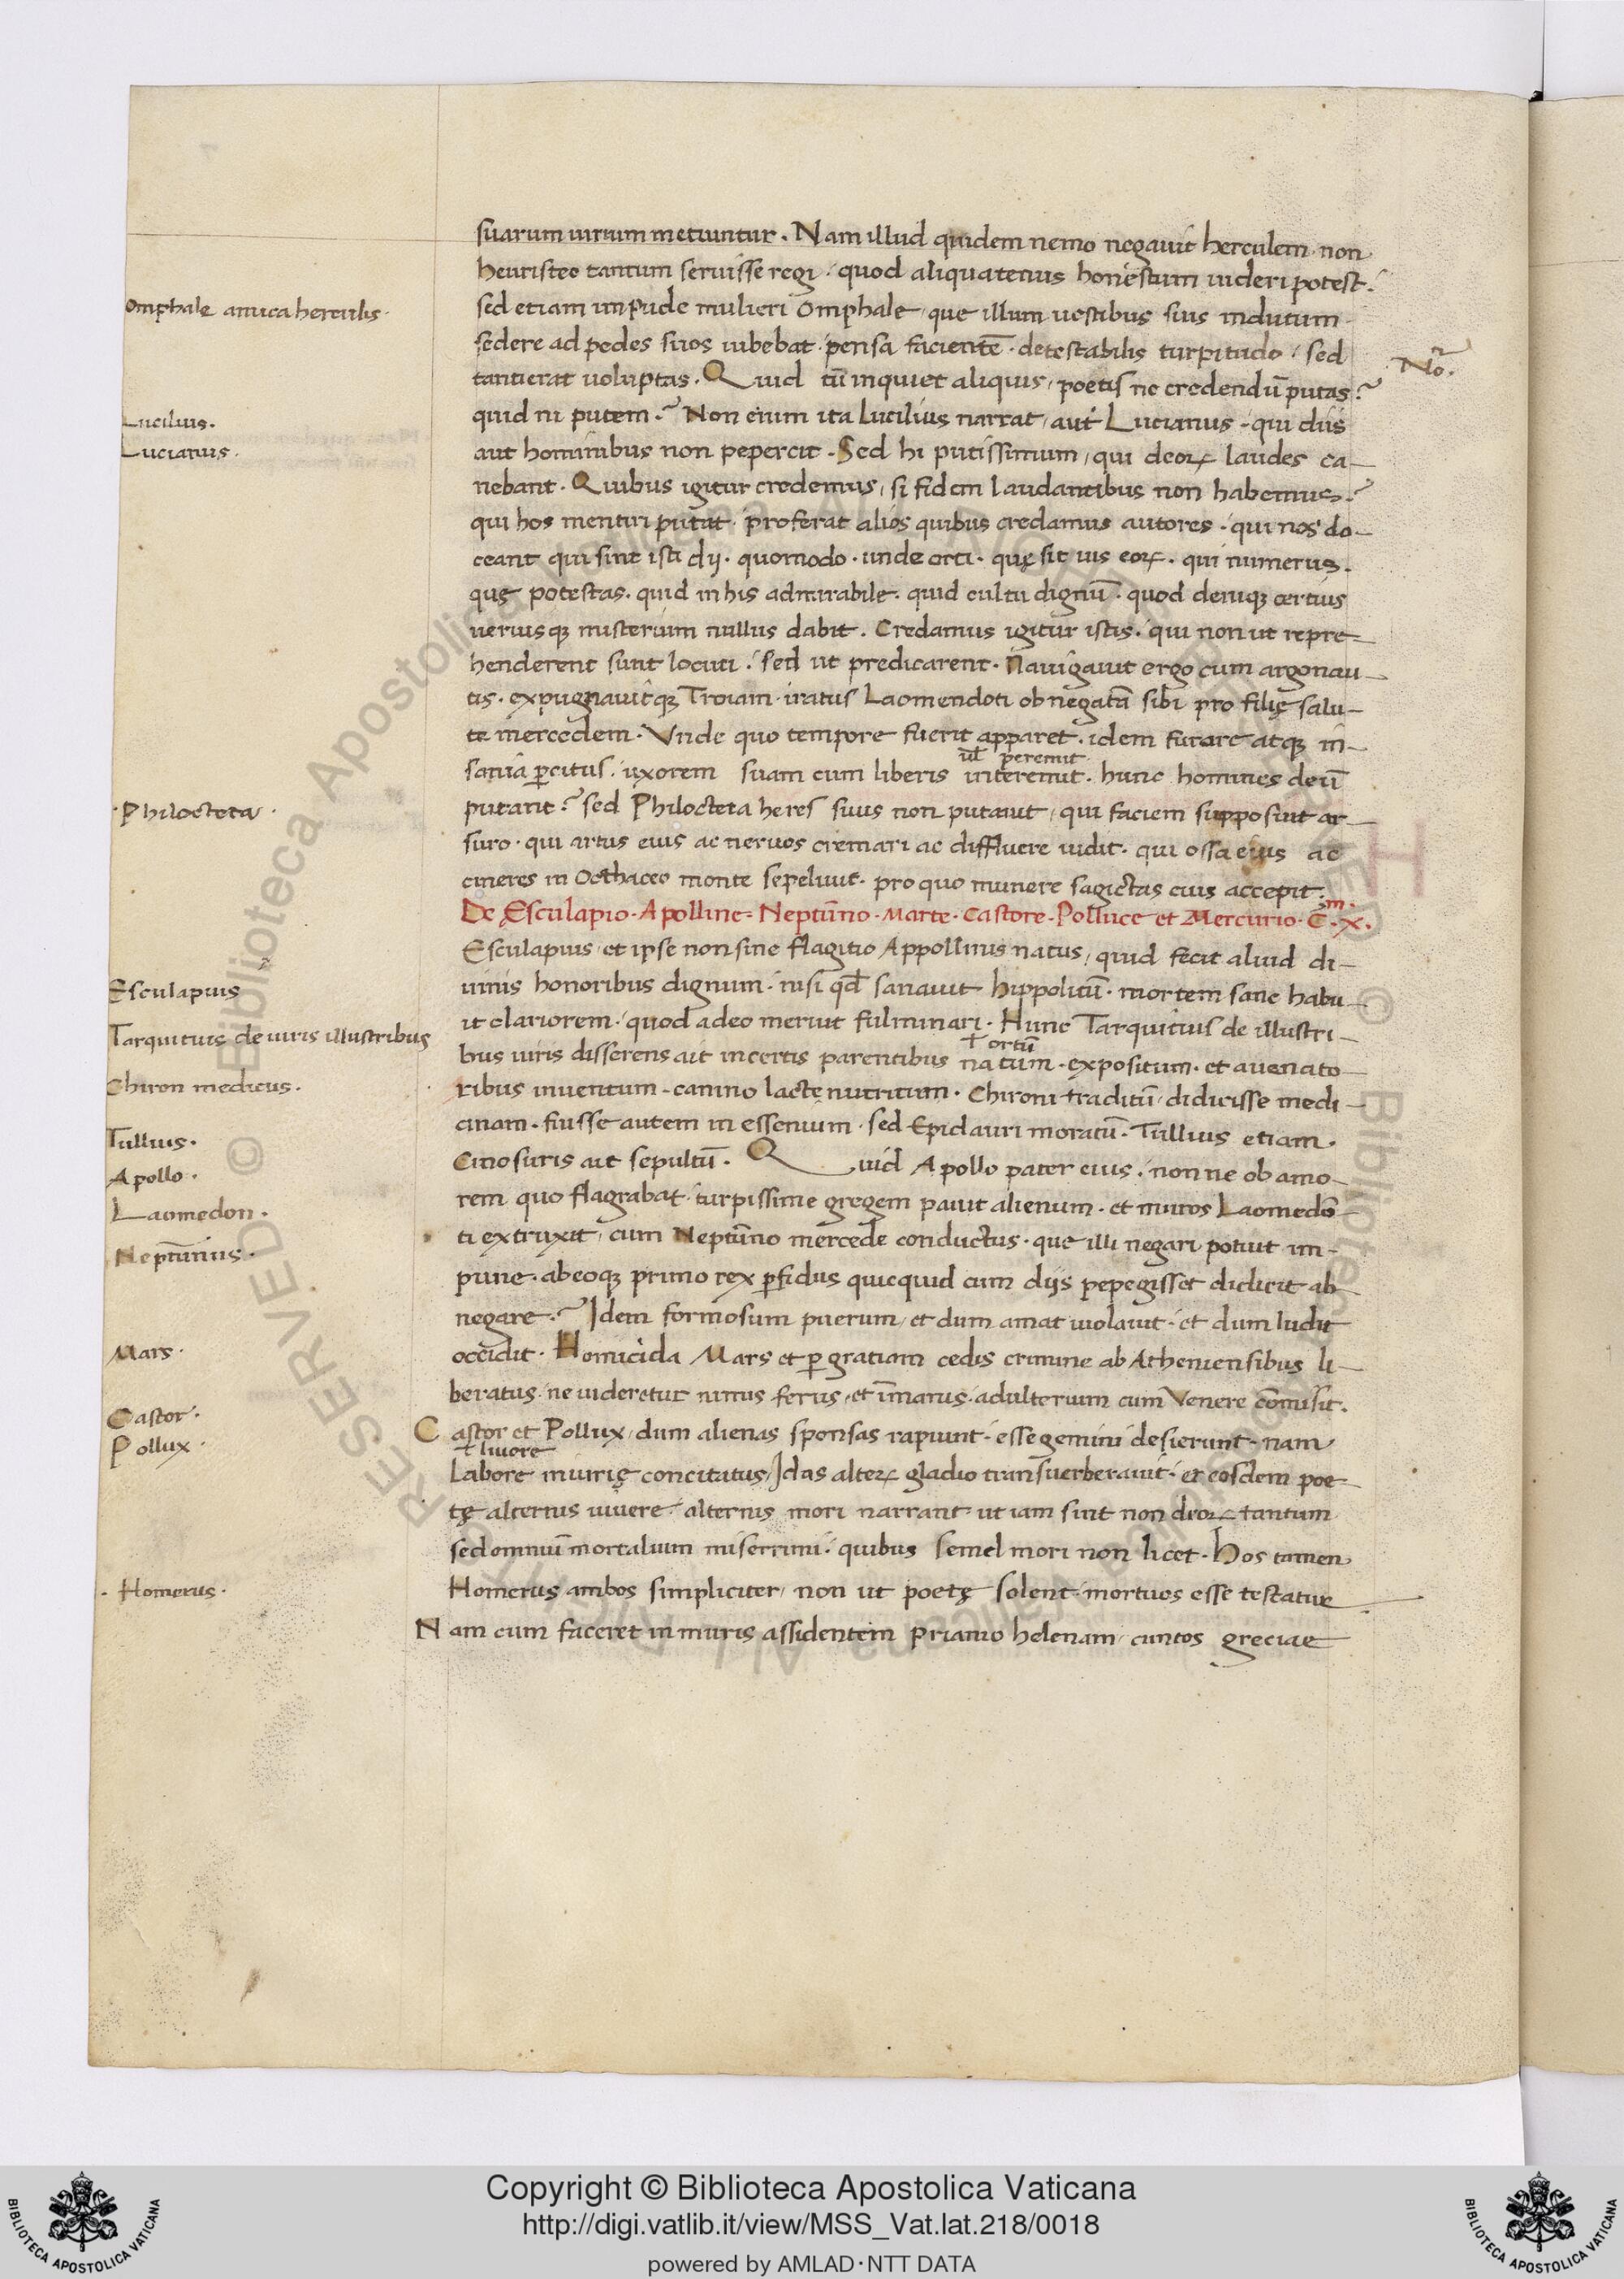 suarum uirium metiuntur. Nam illud quidem nemo negauit herculem non
heuristeo tantum seruisse regi. quod aliquatenus honestum uideri potest.
Omphale amica herculis.
sed etiam impudę mulieri Omphale, que illum uestibus suis indutum
sedere ad pedes suos iubebat. pensa facientē. detestabilis turpitudo. sed
No.
tanti erat uoluptas. Quid tū inquiet aliquis, poetis ne credendū putas?
quid ni putem? Non enim ita Lucilius narrat, aut Lucianus. qui diis
Lucilius.
Lucianus.
aut hominibus non pepercit. Sed hi putissimum, qui deoꝝ laudes ca-
nebant. Quibus igitur credemus, si fidem laudantibus non habemus?
qui hos mentiri putat. proferat alios quibus credamus autores. qui nos do-
ceant qui sint isti dij. quomodo. unde orti. quę sit uis eoꝝ. qui numerus.
quę potestas. quid in his admirabile. quid cultu dignū. quod deniqꝫ certius
ueriusqꝫ misterium nullus dabit. Credamus igitur istis. qui non ut repre-
henderent sunt locuti. sed ut predicarent. Nauigauit ergo cum argonau-
tis. expugnauitqꝫ Troiam. iratus Laomendoti ob negatā sibi pro filię salu-
te mercedem. Vnde quo tempore fuerit apparet. idem furore atqꝫ in-
ul̄ peremit
sania ꝑcitus. uxorem suam cum liberis interemit. hunc homines deū
Philocteta.
putant? sed Philocteta heres suus non putauit, qui faciem supposuit ar-
suro. qui artus eius ac neruos cremari ac diffluere uidit. qui ossa eius ac
cineres in Octhaceo monte sepeliuit. pro quo munere sagictas eius accepit.
De Esculapio. Apolline. Neptūno. Marte. Castore. Polluce et Mercurio. C̄. x.m
Esculapius et ipse non sine flagitio Appollinis natus, quid fecit aliud di-
Esculapius
uinis honoribus dignum. nisi qd̄ sanauit hippolitū. mortem sane habu-
it clariorem. quod a deo meruit fulminari. Hunc Tarquitius de illustri-
Tarquituis de uiris illustribus
ortū
bus uiris disserens ait incertis parentibus natum. expositum. et a uenato-
Chiron medicus.
ribus inuentum. canino lacte nutritum. Chironi traditū. didicisse medi-
cinam. fuisse autem messenium. sed Epidauri moratū. Tullius etiam.
Tullius.
Cinosuris ait sepultū. Quid Apollo pater eius. nonne ob amo-
Apollo.
rem quo flagrabat. turpissime gregem pauit alienum. et muros Laomedō
Laomedon.
ti extruxit, cum Neptūno mercede conductus. que illi negari potuit im-
Neptūnus.
pune. ab eoqꝫ primo rex ꝑfidus quicquid cum diis pepegisset didicit ab
negare? Idem formosum puerum, et dum amat uiolauit. et dum ludit
Mars.
occidit. Homicida Mars et ꝑ gratiam cedis crimine ab Atheniensibus li-
beratus. ne uideretur nimis ferus, et īmanis. adulterium cum Venere cōmisit.
Castor.
Castor et Pollux, dum alienas sponsas rapiunt. esse gemini desierunt. nam
Pollux.
liuore
Labore iniurię concitatus, Idas alteꝝ gladio transuerberauit. et eosdem poe-
tę alternis uiuere. alternis mori narrant. ut iam sint non deoꝝ tantum
sed omniū mortalium miserrimi. quibus semel mori non licet. Hos tamen
Homerus.
Homerus ambos simpliciter, non ut poetę solent. mortuos esse testatur
Nam cum faceret in muris assidentem Priamo helenam, cuntos greciae
H
© Biblioteca Apostolica Vaticana ALL RIGHTS RESERVED
Copyright © Biblioteca Apostolica Vaticana
http://digi.vatlib.it/view/MSS_Vat.lat.218/0018
powered by AMLAD·NTT DATA
BIBLIOTECA APOSTOLICA VATICANA
BIBLIOTECA APOSTOLICA VATICANA